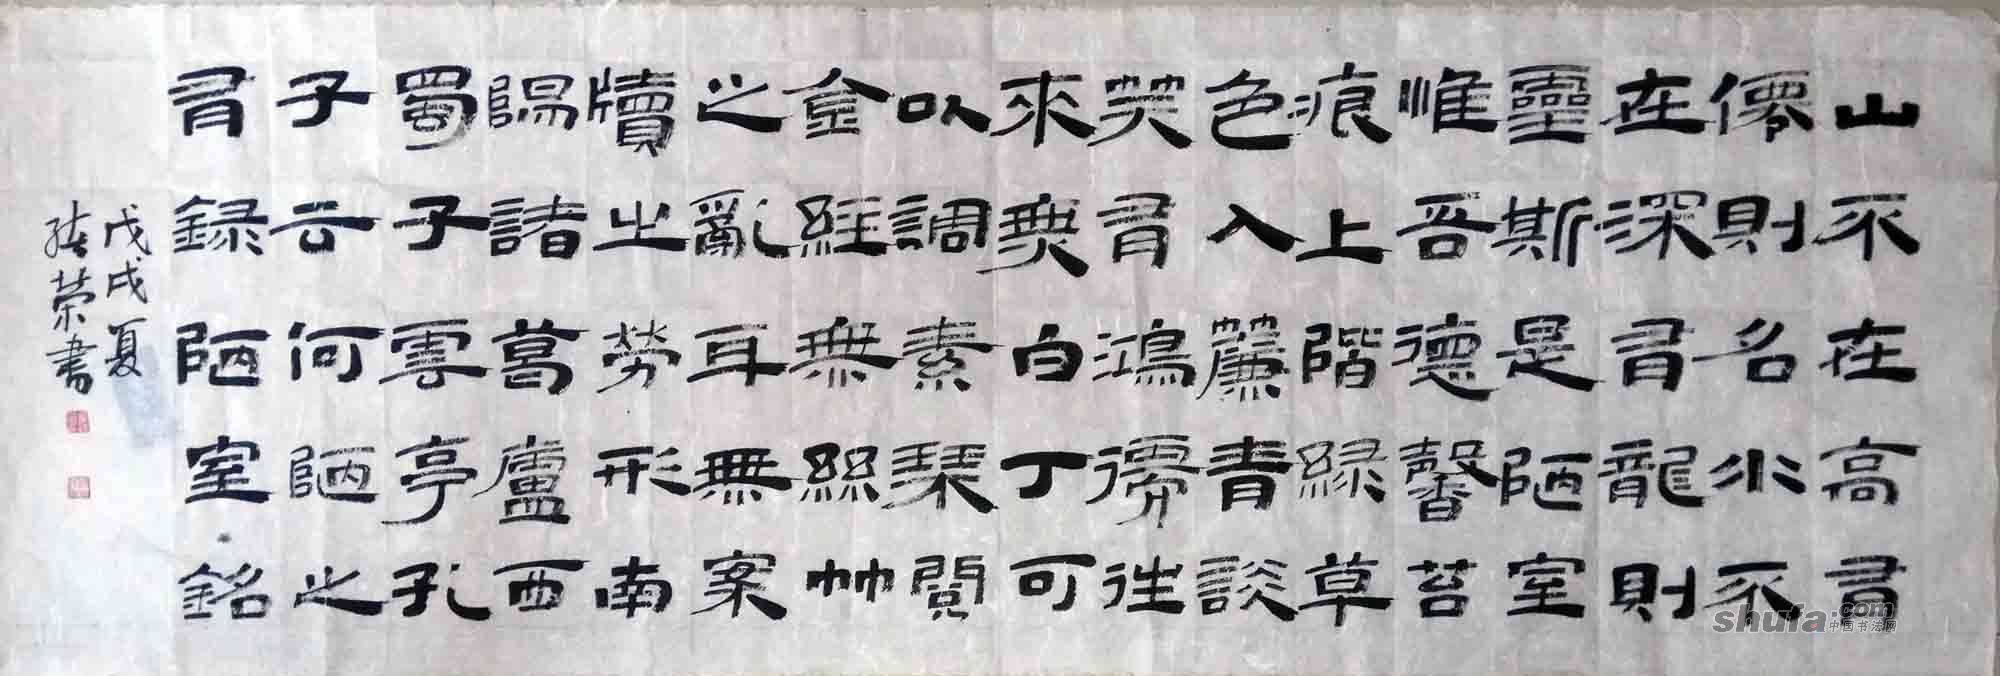 山不在高有
僊則名水不
在深有龍則
靈斯是陋室
惟吾德馨苔
痕上階綠草
色入簾青談
笑有鴻儒往
來無白丁可
以調素琴閱
金經無絲竹
之亂耳無案
牘之勞形南
陽諸葛盧西
蜀子雲亭孔
子云何陋之
有録陋室銘
戊戌夏
榮書
shufa.com
中国书法网